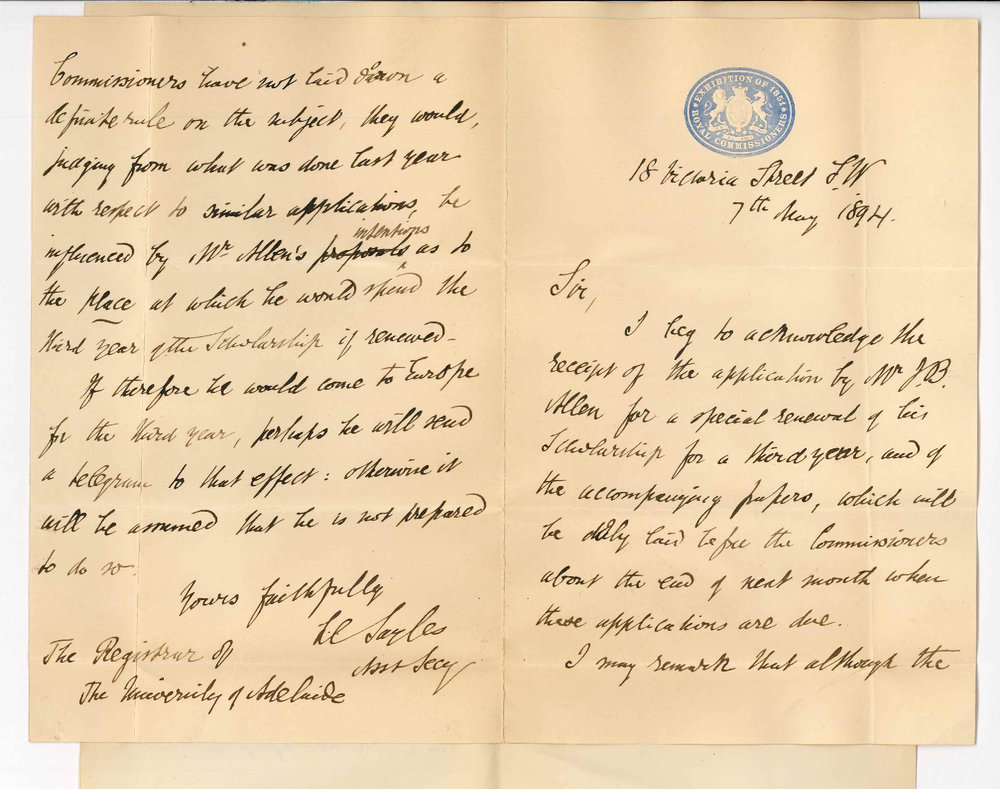 EXHIBITION OF 1851
ROYAL COMMISSIONERS
18 Victoria Street S.W
7th May 1894.
Sir,
I beg to acknowledge the
receipt of the application by Mr J.B.
Allen for a special renewal of his
Scholarship for a third year, and of
the accompanying papers, which will
be duly laid before the Commissioners
about the end of next month when
these applications are due.
I may remark that although the
Commissioners have not laid down a
definite rule on the subject, they would,
judging from what was done last year
with respect to similar applications, be
intentions
influenced by Mr Allen's proposals as to
the place at which he would spend the
third year of the Scholarship if renewed.
If therefore he would come to Europe
for the third year, perhaps he will send
a telegram to that effect: otherwise it
will be assumed that he is not prepared
to do so.
Yours faithfully
Sayles
Asst Secy
The Registrar of
The University of Adelaide